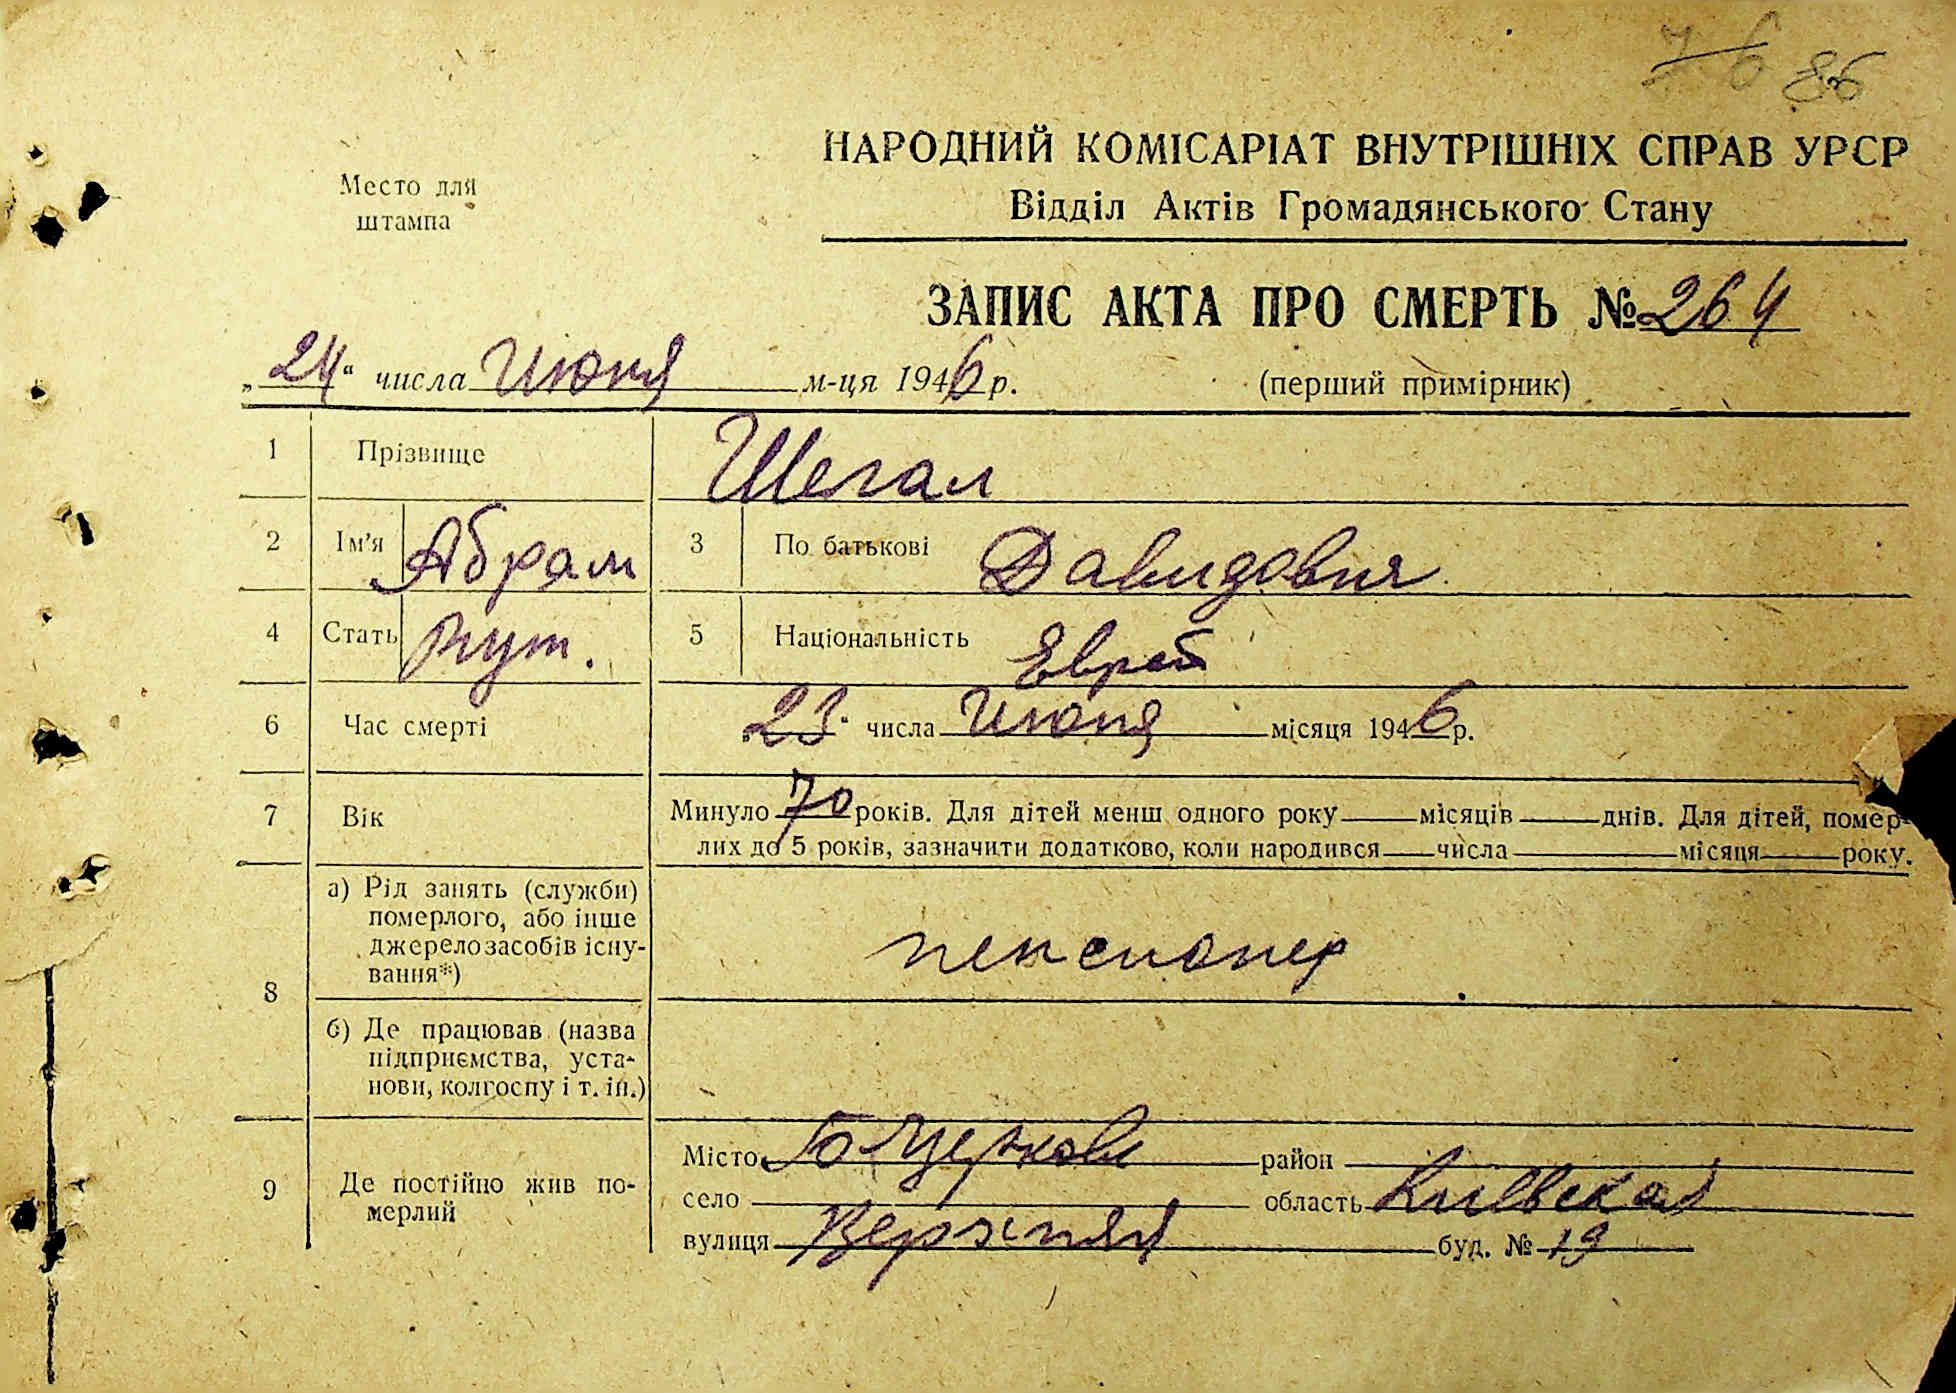 76 86
НАРОДНИЙ КОМІСАРІАТ ВНУТРІШНІХ СПРАВ УРСР
Место для
штампа
Відділ Актів Громадянського Стану
ЗАПИС АКТА ПРО СМЕРТЬ № 264
„24“ числа Июня м-ця 1946 р. (перший примірник)
1 Прізвище Шегал
2 Ім'я Абрам 3 По батькові Давидович
4 Стать муж. 5 Національність Еврей
6 Час смерті 23 числа Июня місяця 1946 р.
7 Вік Минуло 70 років. Для дітей менш одного року місяців днів. Для дітей, помер-
лих до 5 років, зазначити додатково, коли народився числа місяця року.
8 а) Рід занять (служби)
померлого, або інше
джерело засобів існу-
вання*) пенсионер
б) Де працював (назва
підприємства, уста-
нови, колгоспу і т. ін.)
9 Де постійно жив по-
мерлий
Місто Б Церковь район
село область Киевская
вулиця Верхняя буд. № 19